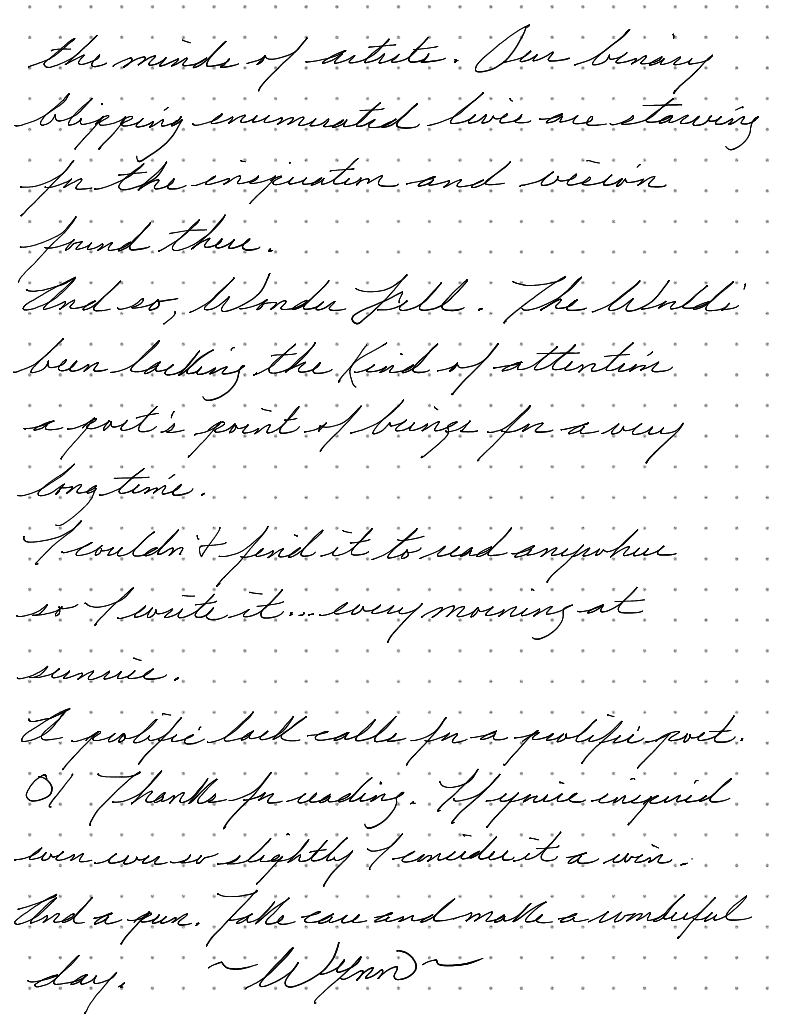 the minds of artists. Our binary
blipping enumerated lives are starving
for the inspiration and vision
found there.
And so, Wonder Fell. The World's
been lacking the kind of attention
a poet's point of brings for a very
long time.
I couldn't find it to read anywhere
so I write it... every morning at
sunrise.
A prolific lack calls for a prolific poet.
Thanks for reading. If you're inspired
even ever so slightly I consider it a win.
And a pun. Take care and make a wonderful
day. ~Wynn~